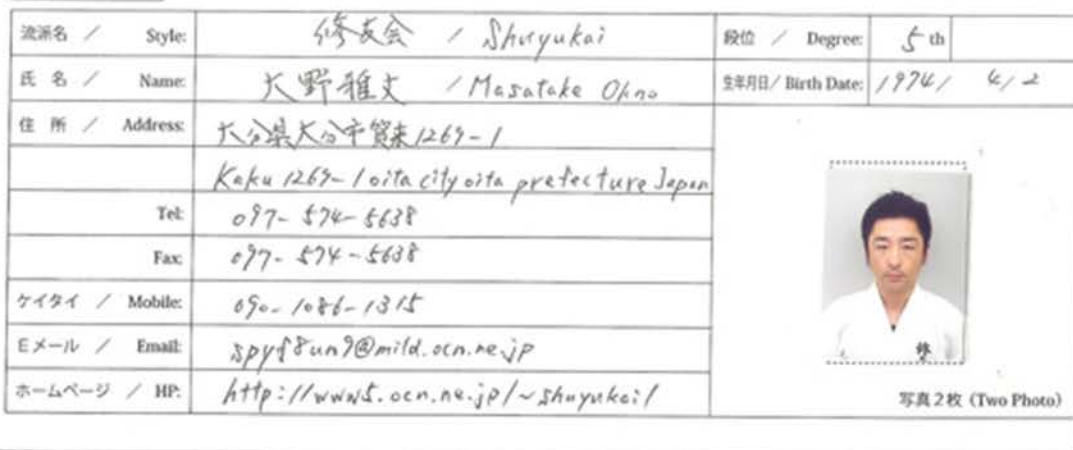 流派名 / Style: 修友会 / Shuyukai 段位 / Degree: 5 th
氏 名 / Name: 大野雅丈 / Masatake Ohno 生年月日 / Birth Date: 1974 / 4 / 2
住 所 / Address: 大分県大分市賀来1269-1
Kaku 1269-1 oita city oita prefecture Japan
Tel: 097-574-5638
Fax: 097-574-5638
ケイタイ / Mobile: 090-1086-1315
Eメール / Email: spyf8un9@mild.ocn.ne.jp
ホームページ / HP: http://www5.ocn.ne.jp/~shuyukai/
写真2枚 (Two Photo)